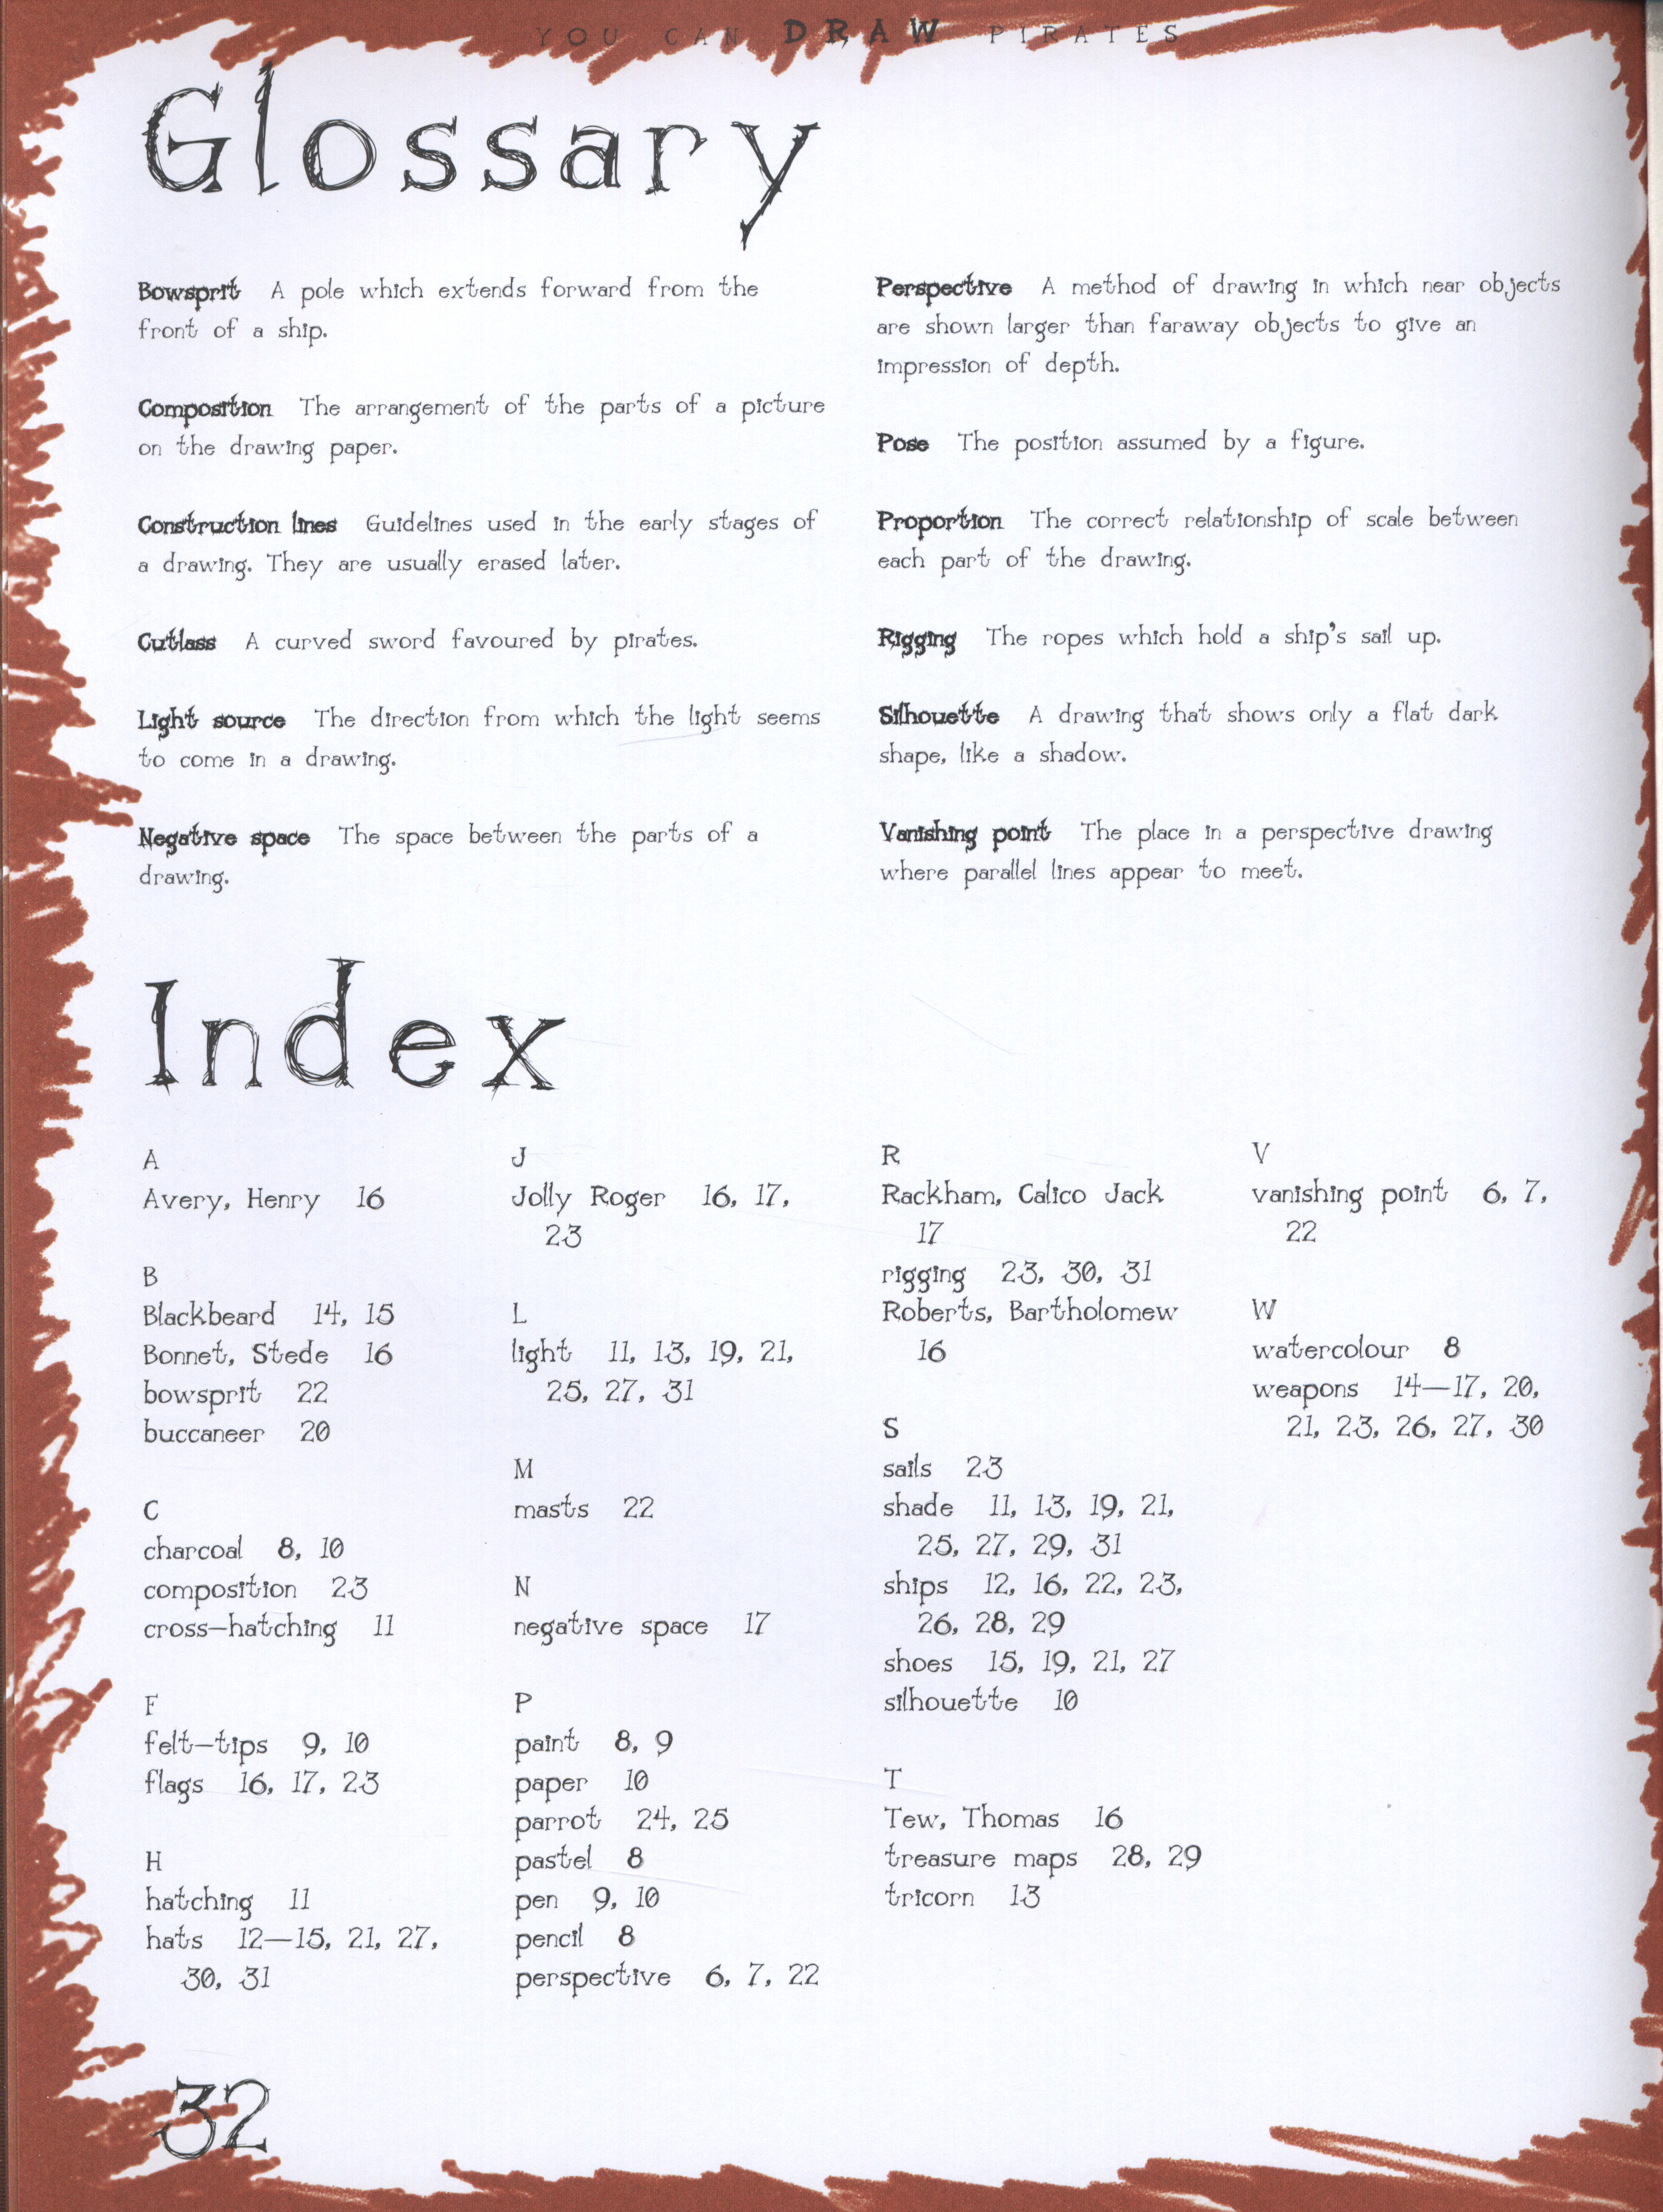 YOU CAN DRAW PIRATES
Glossary
Bowsprit A pole which extends forward from the
front of a ship.
Composition The arrangement of the parts of a picture
on the drawing paper.
Construction lines Guidelines used in the early stages of
a drawing. They are usually erased later.
Cutlass A curved sword favoured by pirates.
Light source The direction from which the light seems
to come in a drawing.
Negative space The space between the parts of a
drawing.
Perspective A method of drawing in which near objects
are shown larger than faraway objects to give an
impression of depth.
Pose The position assumed by a figure.
Proportion The correct relationship of scale between
each part of the drawing.
Rigging The ropes which hold a ship's sail up.
Silhouette A drawing that shows only a flat dark
shape, like a shadow.
Vanishing point The place in a perspective drawing
where parallel lines appear to meet.
Index
A
Avery, Henry 16
B
Blackbeard 14, 15
Bonnet, Stede 16
bowsprit 22
buccaneer 20
C
charcoal 8, 10
composition 23
cross-hatching 11
F
felt-tips 9, 10
flags 16, 17, 23
H
hatching 11
hats 12—15, 21, 27,
30, 31
J
Jolly Roger 16, 17,
23
L
light 11, 13, 19, 21,
25, 27, 31
M
masts 22
N
negative space 17
P
paint 8, 9
paper 10
parrot 24, 25
pastel 8
pen 9, 10
pencil 8
perspective 6, 7, 22
R
Rackham, Calico Jack
17
rigging 23, 30, 31
Roberts, Bartholomew
16
S
sails 23
shade 11, 13, 19, 21,
25, 27, 29, 31
ships 12, 16, 22, 23,
26, 28, 29
shoes 15, 19, 21, 27
silhouette 10
T
Tew, Thomas 16
treasure maps 28, 29
tricorn 13
V
vanishing point 6, 7,
22
W
watercolour 8
weapons 14—17, 20,
21, 23, 26, 27, 30
32